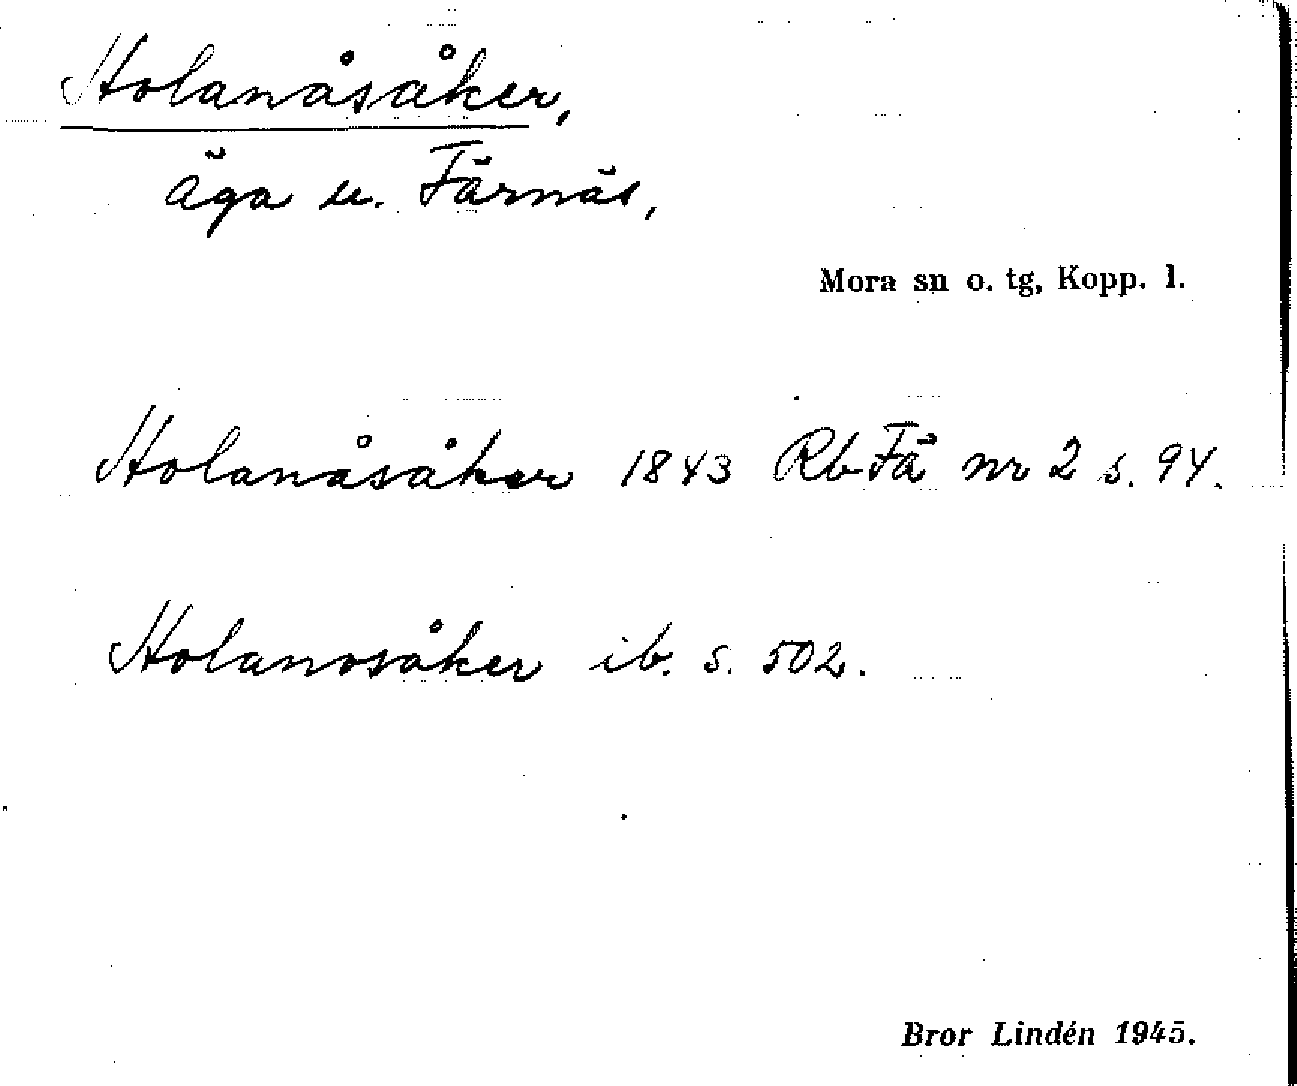 Holanåsåker,
äga u. Färnäs,
Mora sn o. tg, Kopp. l.
Holanåsåker 1843 Rb Fä nr 2 s. 94.
Holanosåker ib. s. 502.
Bror Lindén 1945.